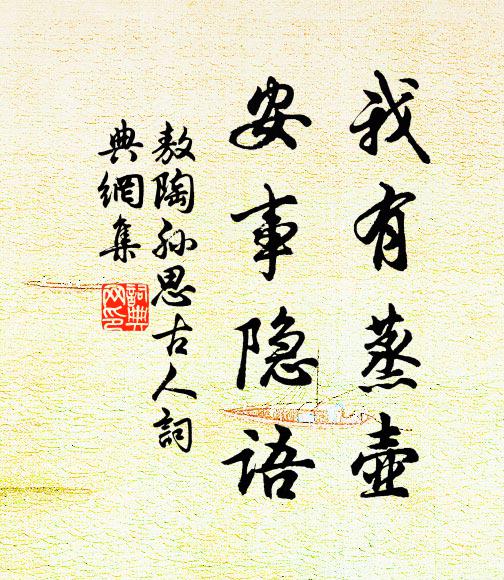 我有蒸壺
安事隐語
敖陶孙思古人詞
典網集
詞典
网印